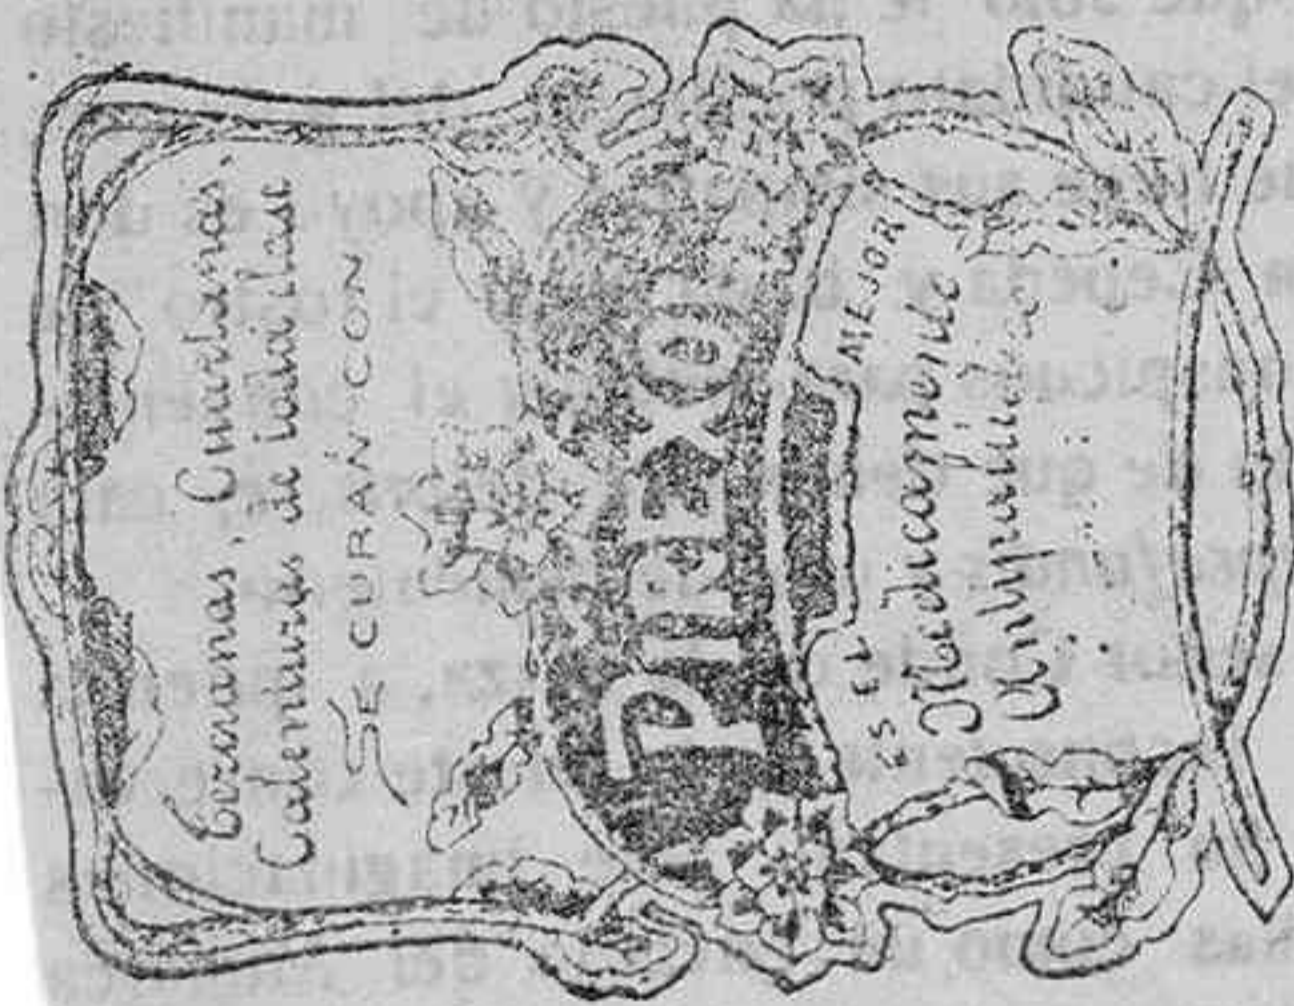 Tercianas, Cuartanas,
Calenturas de todas clase
SE CURAN CON
PIREXOL
ES EL MEJOR
Medicamento
Antipalúdico